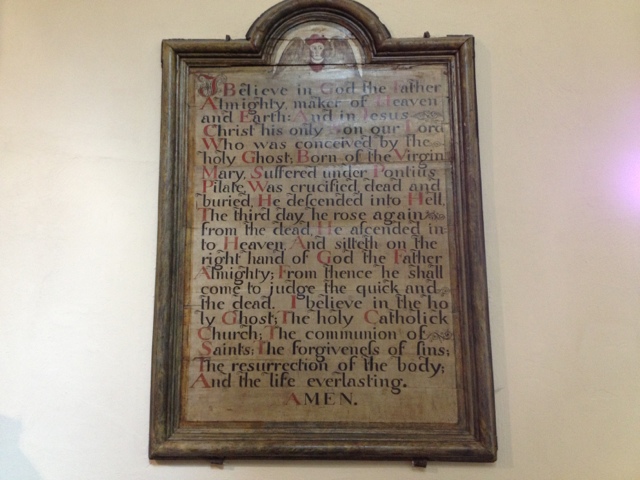 I Believe in God the Father
Almighty, maker of Heaven
and Earth: And in Jesus
Christ his only Son our Lord
Who was conceived by the
holy Ghost; Born of the Virgin
Mary, Suffered under Pontius
Pilate, Was crucified, dead and
buried, He deſcended into Hell,
The third day he rose again
from the dead, He aſcended in
to Heaven, And sitteth on the
right hand of God the Father
Almighty; From thence he shall
come to judge the quick and
the dead. I believe in the ho
ly Ghost; The holy Catholick
Church; The communion of
Saints; The forgiveneſs of ſins;
The resurrection of the body;
And the life everlasting.
AMEN.